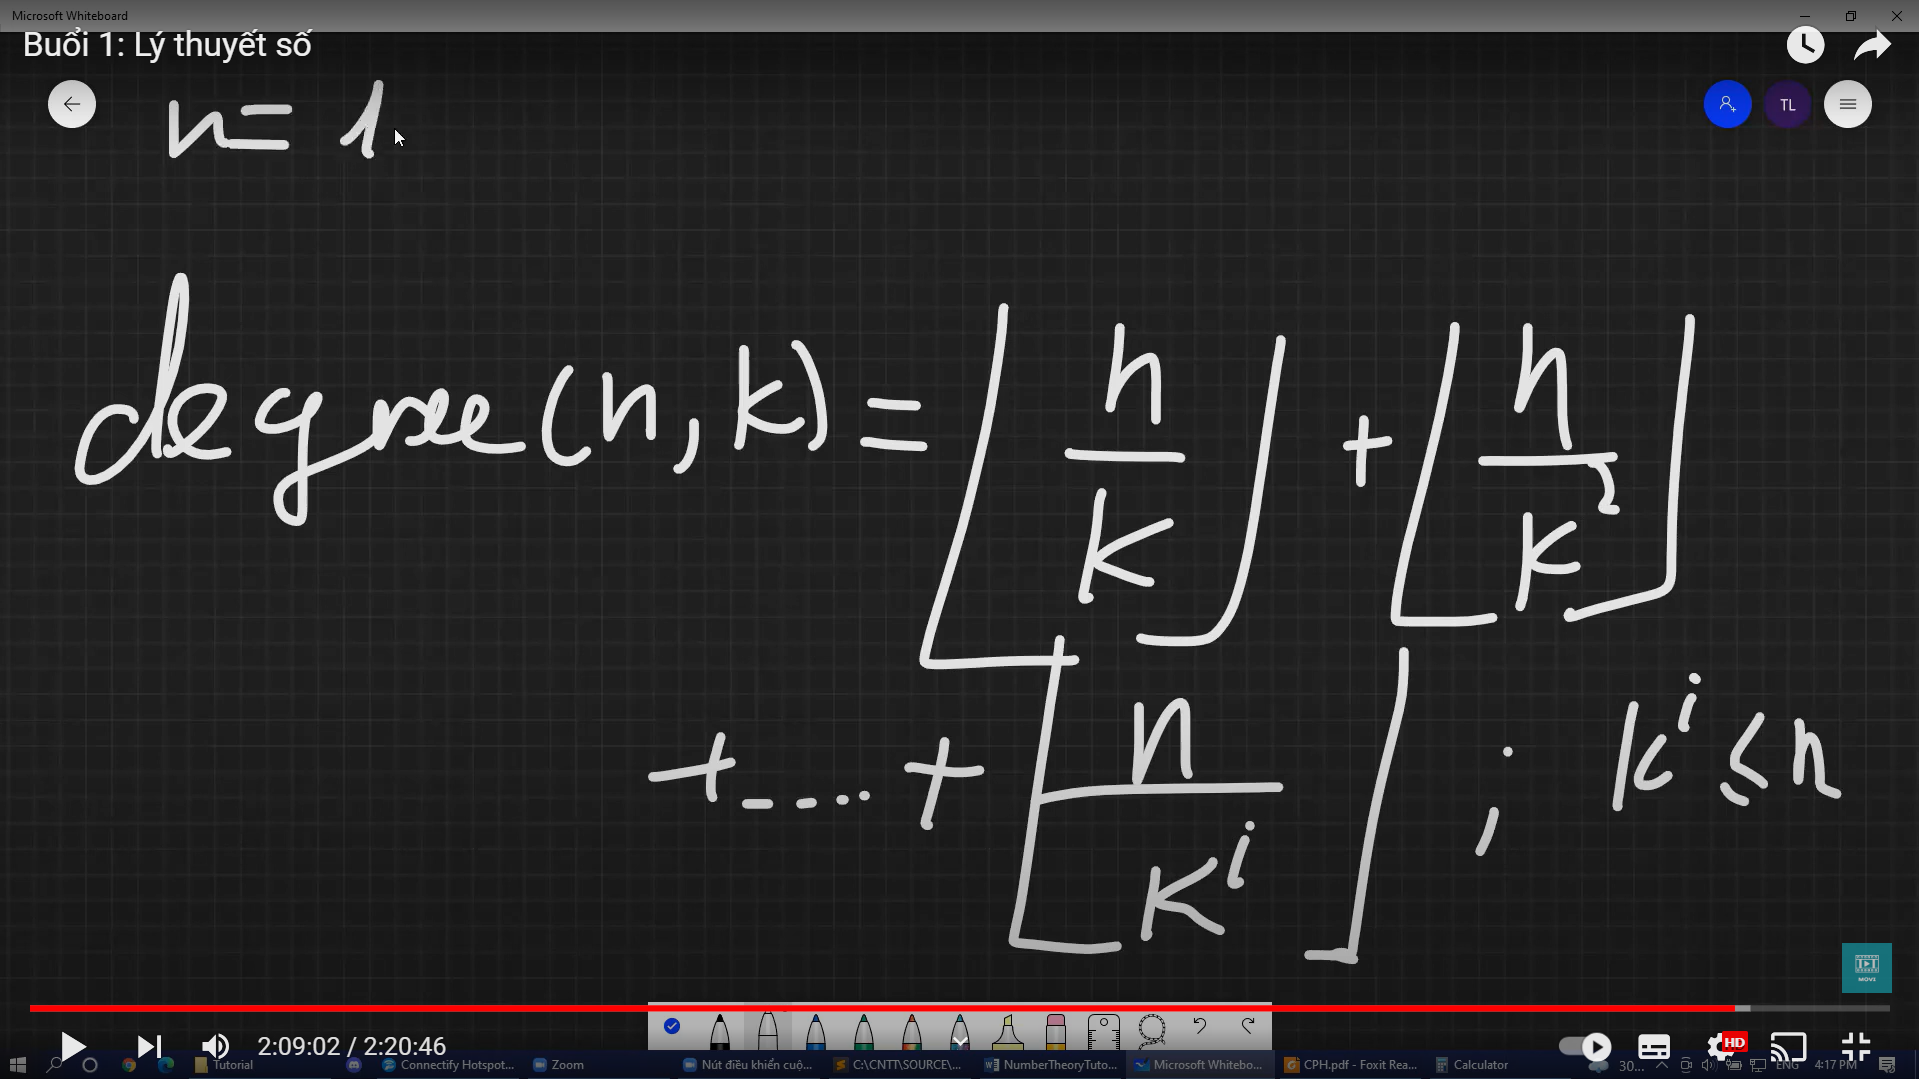 Microsoft Whiteboard
Buổi 1: Lý thuyết số
TL
n = 1
degree(n, k) = ⌊n/k⌋ + ⌊n/k²⌋
+ .... + ⌊n/kⁱ⌋ ; kⁱ ≤ n
MOVI
2:09:02 / 2:20:46
HD
Tutorial
Connectify Hotspot...
Zoom
Nút điều khiển cuộ...
C:\CNTT\SOURCE\...
NumberTheoryTuto...
Microsoft Whitebo...
CPH.pdf - Foxit Rea...
Calculator
30...
ENG
4:17 PM